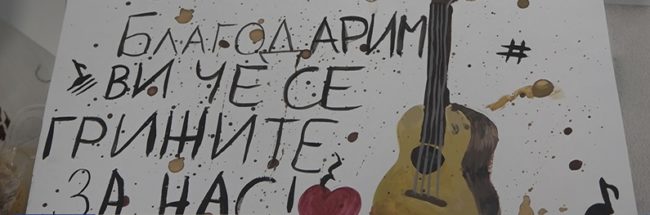 БЛАГОДАРИМ
ВИ ЧЕ СЕ
ГРИЖИТЕ
ЗА НАС!